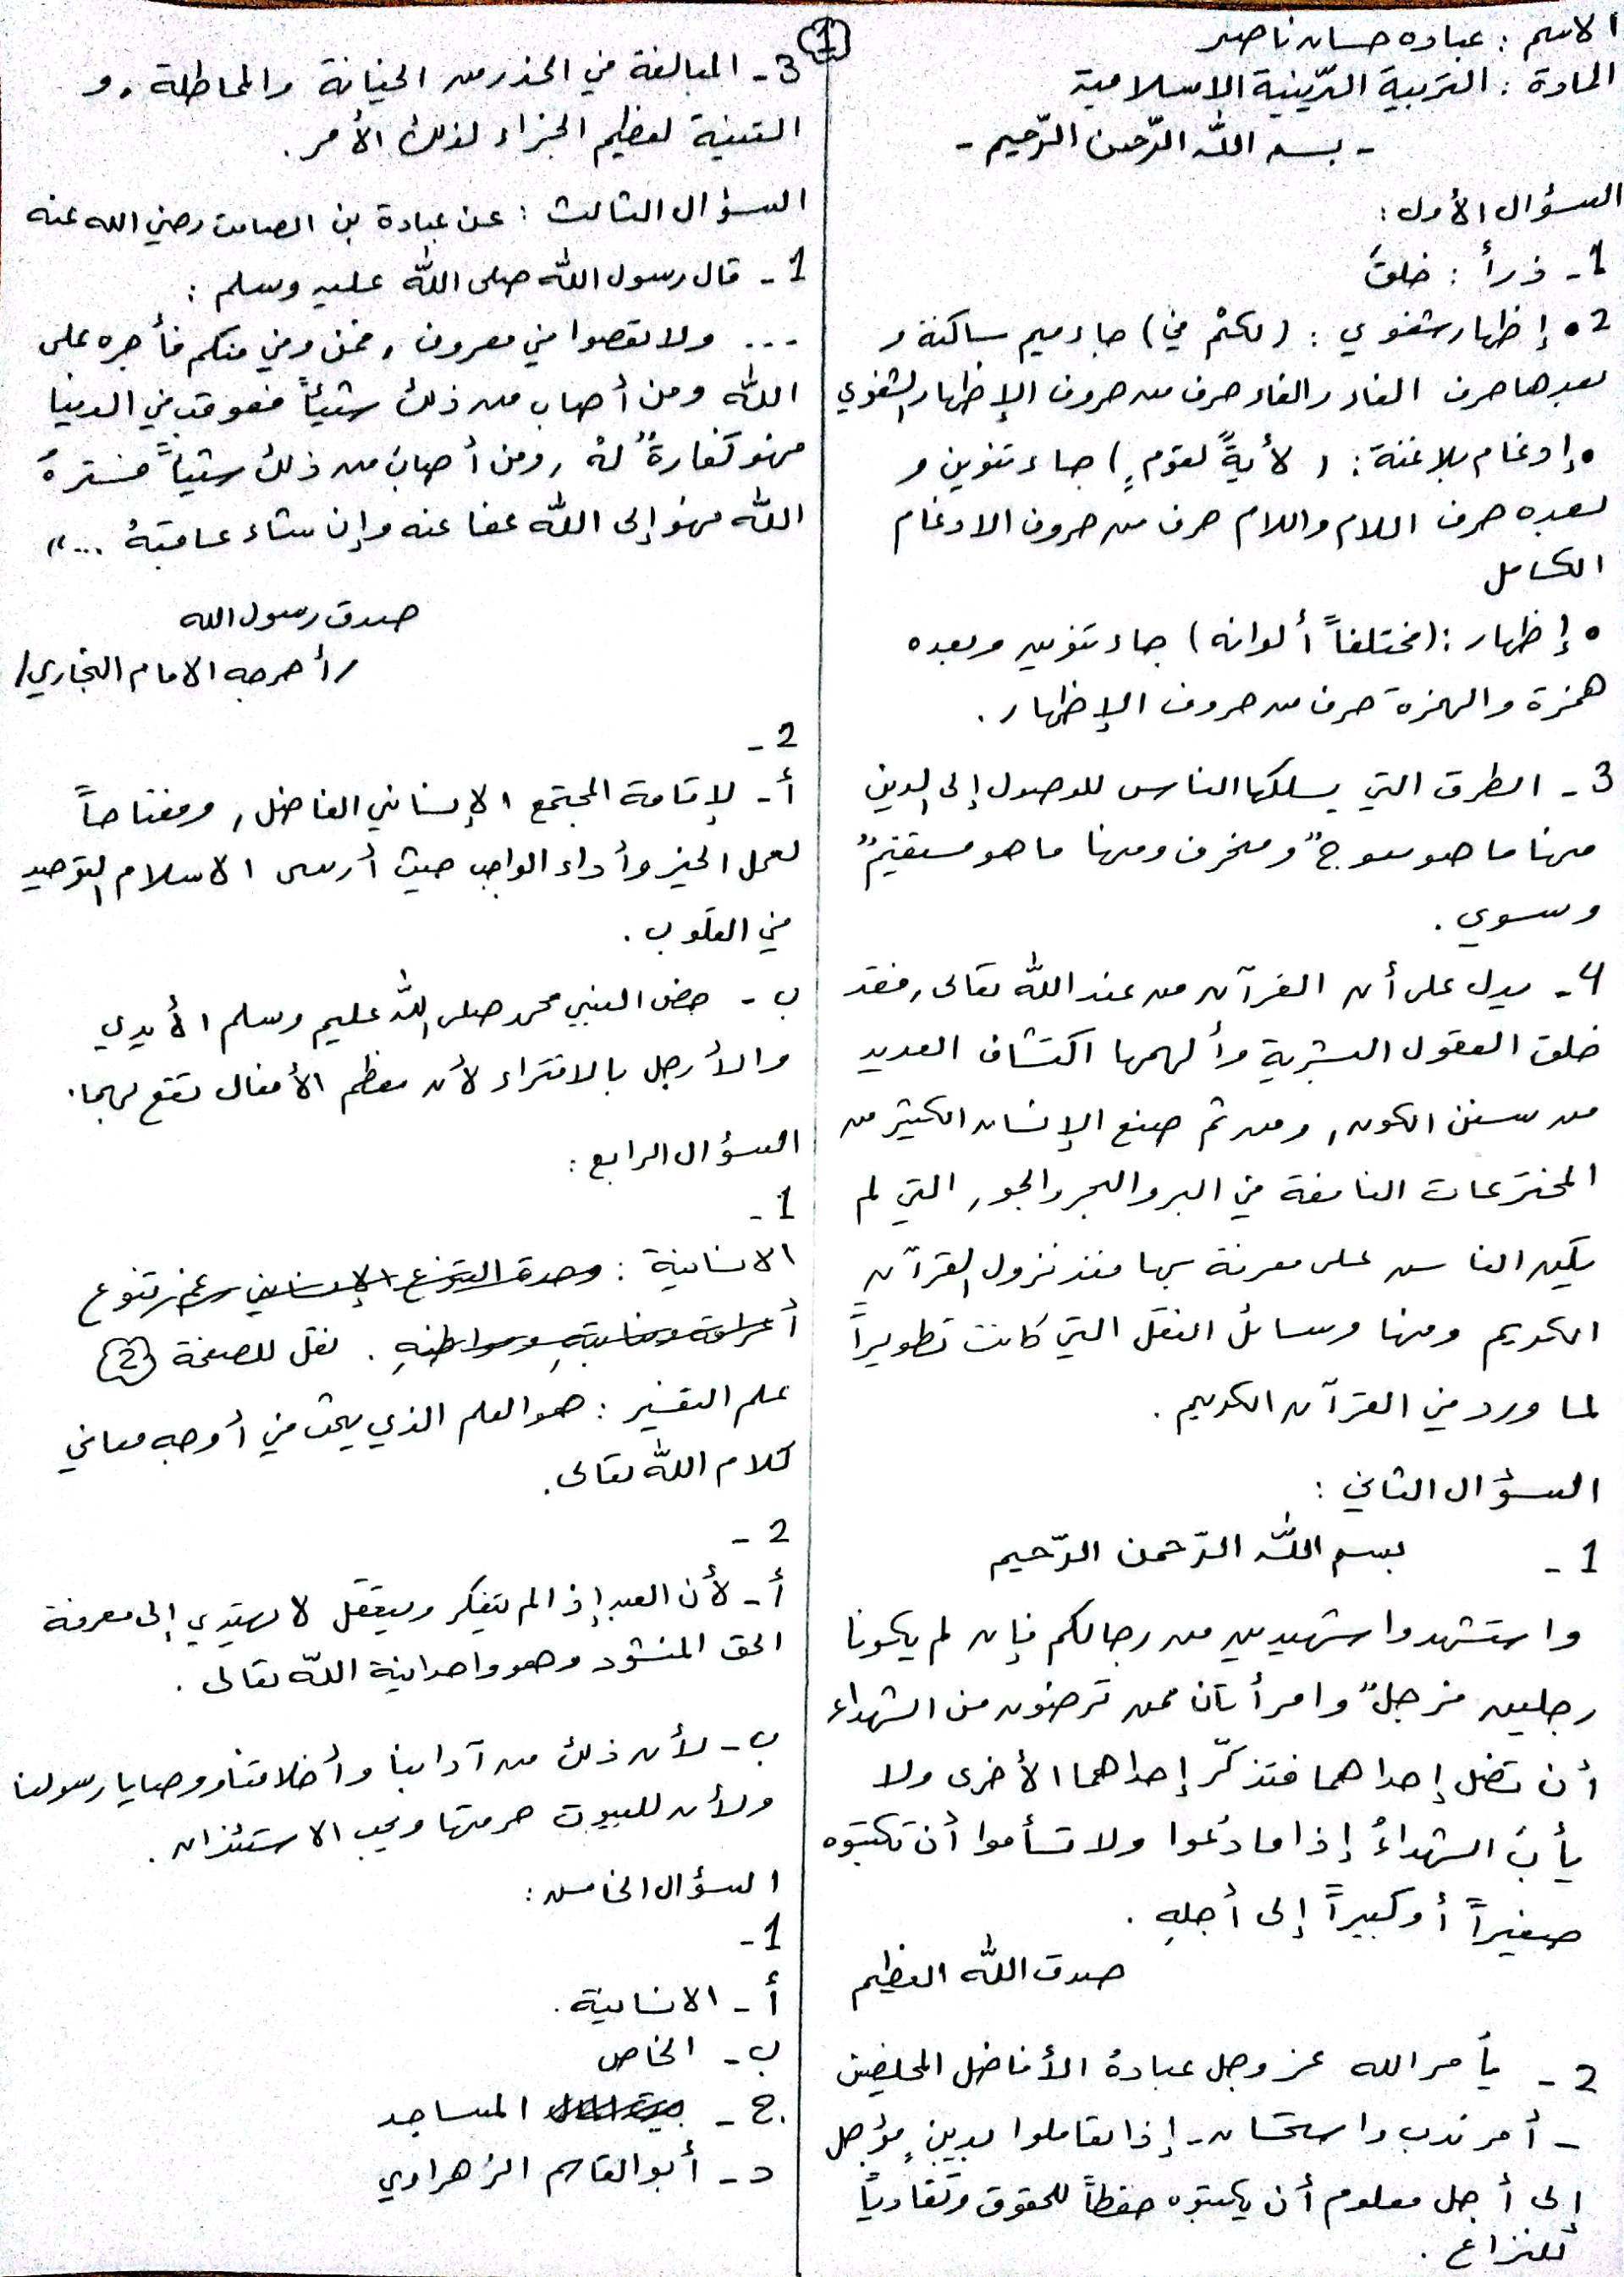 الاسم : عباده حسان ناصر
المادة : التربية الدّينية الاسلامية
- بسم الله الرّحمن الرّحيم -
السؤال الأول :
1- ذرأ : خلقَ
2 • إظهار شفوي : (لكمْ في) جاء ميم ساكنة و
بعدها حرف الفاء والفاء حرف من حروف الإظهار الشفوي
• إدغام بلا غنة : ( لأيةً لقومٍ ) جاء تنوين و
بعده حرف اللام واللام حرف من حروف الادغام
الكامل
• إظهار : (مختلفاً ألوانه) جاء تنوين وبعده
همزة والهمزة حرف من حروف الإظهار .
3- الطرق التي يسلكها الناس للوصول إلى الدين
منها ما هو معوجٌ ومنحرف ومنها ما هو مستقيمٌ
وسوي .
4- يدل على أن القرآن من عند الله تعالى , فقد
خلق العقول البشرية وألهمها اكتشاف العديد
من سنن الكون , ومن ثم صنع الإنسان الكثير من
المخترعات النافعة في البر والبحر والجو , التي لم
يكن الناس على معرفة بها منذ نزول القرآن
الكريم ومنها وسائل النقل التي كانت تطويراً
لما ورد في القرآن الكريم .
السؤال الثاني :
1- بسم الله الرّحمن الرّحيم
واستشهدوا شهيدين من رجالكم فإن لم يكونا
رجلين فرجلٌ وامرأتان ممن ترضون من الشهداء
أن تضل إحداهما فتذكّر إحداهما الأخرى ولا
يأبَ الشهداءُ إذا ما دُعوا ولا تسأموا أن تكتبوه
صغيراً أو كبيراً إلى أجلهِ .
صدق الله العظيم
2- يأمر الله عز وجل عبادهُ الأفاضل المخلصين
- أمر ندب واستحسان - إذا تعاملوا بدينٍ مؤجل
إلى أجل معلوم أن يكتبوه حفظاً للحقوق وتفادياً
للنزاع .
1
3- المبالغة في الحذر من الخيانة والمماطلة , و
التنبيه لعظيم الجزاء لذلك الأمر .
السؤال الثالث : عن عبادة بن الصامت رضي الله عنه
1- قال رسول الله صلى الله عليه وسلم :
... ولا تعصوا في معروف , فمن وفى منكم فأجره على
الله ومن أصاب من ذلك شيئاً فعوقب في الدنيا
فهو كفارةٌ لهُ , ومن أصاب من ذلك شيئاً فسترهُ
الله فهو إلى الله عفا عنه وإن شاء عاقبهُ ... "
صدق رسول الله
/ أخرجه الامام البخاري /
2-
أ- لإقامة المجتمع الإنساني الفاضل , ومفتاحاً
لعمل الخير وأداء الواجب حيث أرسى الاسلام التوحيد
في القلوب .
ب- خص النبي محمد صلى الله عليه وسلم الأيدي
والأرجل بالافتراء لأن معظم الأفعال تقع بهما .
السؤال الرابع :
1-
الانسانية : وحدة التنوع الإنساني رغم تنوع
أعراقه ومواطنهِ . نقل للصفحة 2
علم التفسير : هو العلم الذي يبحث في أوجه معاني
كلام الله تعالى .
2-
أ- لأن العبد إذا لم يتفكر ويتعقل لا يهتدي إلى معرفة
الحق المنشود وهو واحدانية الله تعالى .
ب- لأن ذلك من آدابنا وأخلاقنا ووصايا رسولنا
ولأن للبيوت حرمتها ويجب الاستئذان .
السؤال الخامس :
1-
أ- الانسانية .
ب- الخاص
ج- المساجد
د- أبو القاسم الزهراوي